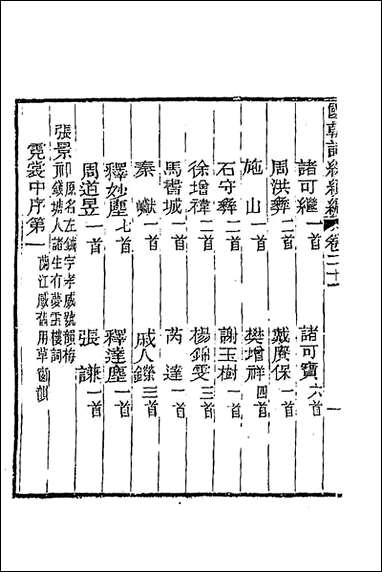 國朝詞綜續編 卷二十一
諸可繼一首 諸可寶六首
周洪彝二首 戴廣保一首
施山一首 樊增祥四首
石守彝一首 謝玉樹一首
徐增禕二首 楊錦雯三首
馬舊城一首 芮達一首
秦巘一首 戚人鑅三首
釋妙塵七首 釋達塵一首
周道昱一首 張謙一首
張景祁 原名左鉞字孝威號韻梅
錢塘人諸生有夢雲樓詞
霓裳中序第一 荷江感舊用草窗韻